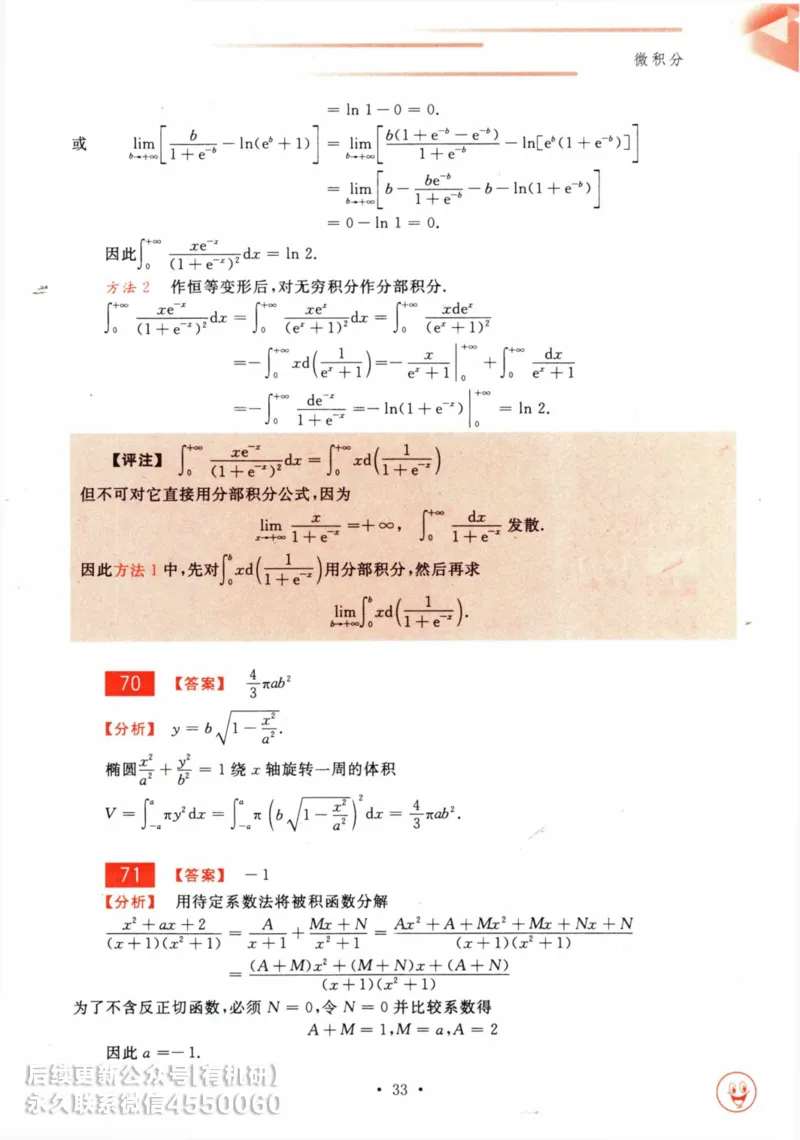 微积分
= ln 1 − 0 = 0.
或 lim_{b→+∞}[b/(1+e^{-b}) − ln(e^b+1)] = lim_{b→+∞}[b(1+e^{-b}−e^{-b})/(1+e^{-b}) − ln[e^b(1+e^{-b})]]
= lim_{b→+∞}[b − be^{-b}/(1+e^{-b}) − b − ln(1+e^{-b})]
= 0 − ln 1 = 0.
因此∫_0^{+∞} xe^{-x}/(1+e^{-x})² dx = ln 2.
方法 2 作恒等变形后,对无穷积分作分部积分.
∫_0^{+∞} xe^{-x}/(1+e^{-x})² dx = ∫_0^{+∞} xe^x/(e^x+1)² dx = ∫_0^{+∞} xde^x/(e^x+1)²
=−∫_0^{+∞} xd(1/(e^x+1)) =− x/(e^x+1)|_0^{+∞} + ∫_0^{+∞} dx/(e^x+1)
=−∫_0^{+∞} de^{-x}/(1+e^{-x}) =− ln(1+e^{-x})|_0^{+∞} = ln 2.
【评注】 ∫_0^{+∞} xe^{-x}/(1+e^{-x})² dx = ∫_0^{+∞} xd(1/(1+e^{-x}))
但不可对它直接用分部积分公式,因为
lim_{x→+∞} x/(1+e^{-x}) =+∞, ∫_0^{+∞} dx/(1+e^{-x}) 发散.
因此方法 1 中,先对∫_0^b xd(1/(1+e^{-x}))用分部积分,然后再求
lim_{b→+∞}∫_0^b xd(1/(1+e^{-x})).
70 【答案】 4/3 πab²
【分析】 y = b√(1−x²/a²).
椭圆x²/a² + y²/b² = 1 绕 x 轴旋转一周的体积
V = ∫_{-a}^a πy²dx = ∫_{-a}^a π(b√(1−x²/a²))² dx = 4/3 πab².
71 【答案】 −1
【分析】 用待定系数法将被积函数分解
(x²+ax+2)/((x+1)(x²+1)) = A/(x+1) + (Mx+N)/(x²+1) = (Ax²+A+Mx²+Mx+Nx+N)/((x+1)(x²+1))
= ((A+M)x²+(M+N)x+(A+N))/((x+1)(x²+1))
为了不含反正切函数,必须 N = 0,令 N = 0 并比较系数得
A+M = 1,M = a,A = 2
因此 a =−1.
后续更新公众号[有机研]
永久联系微信4550060
• 33 •